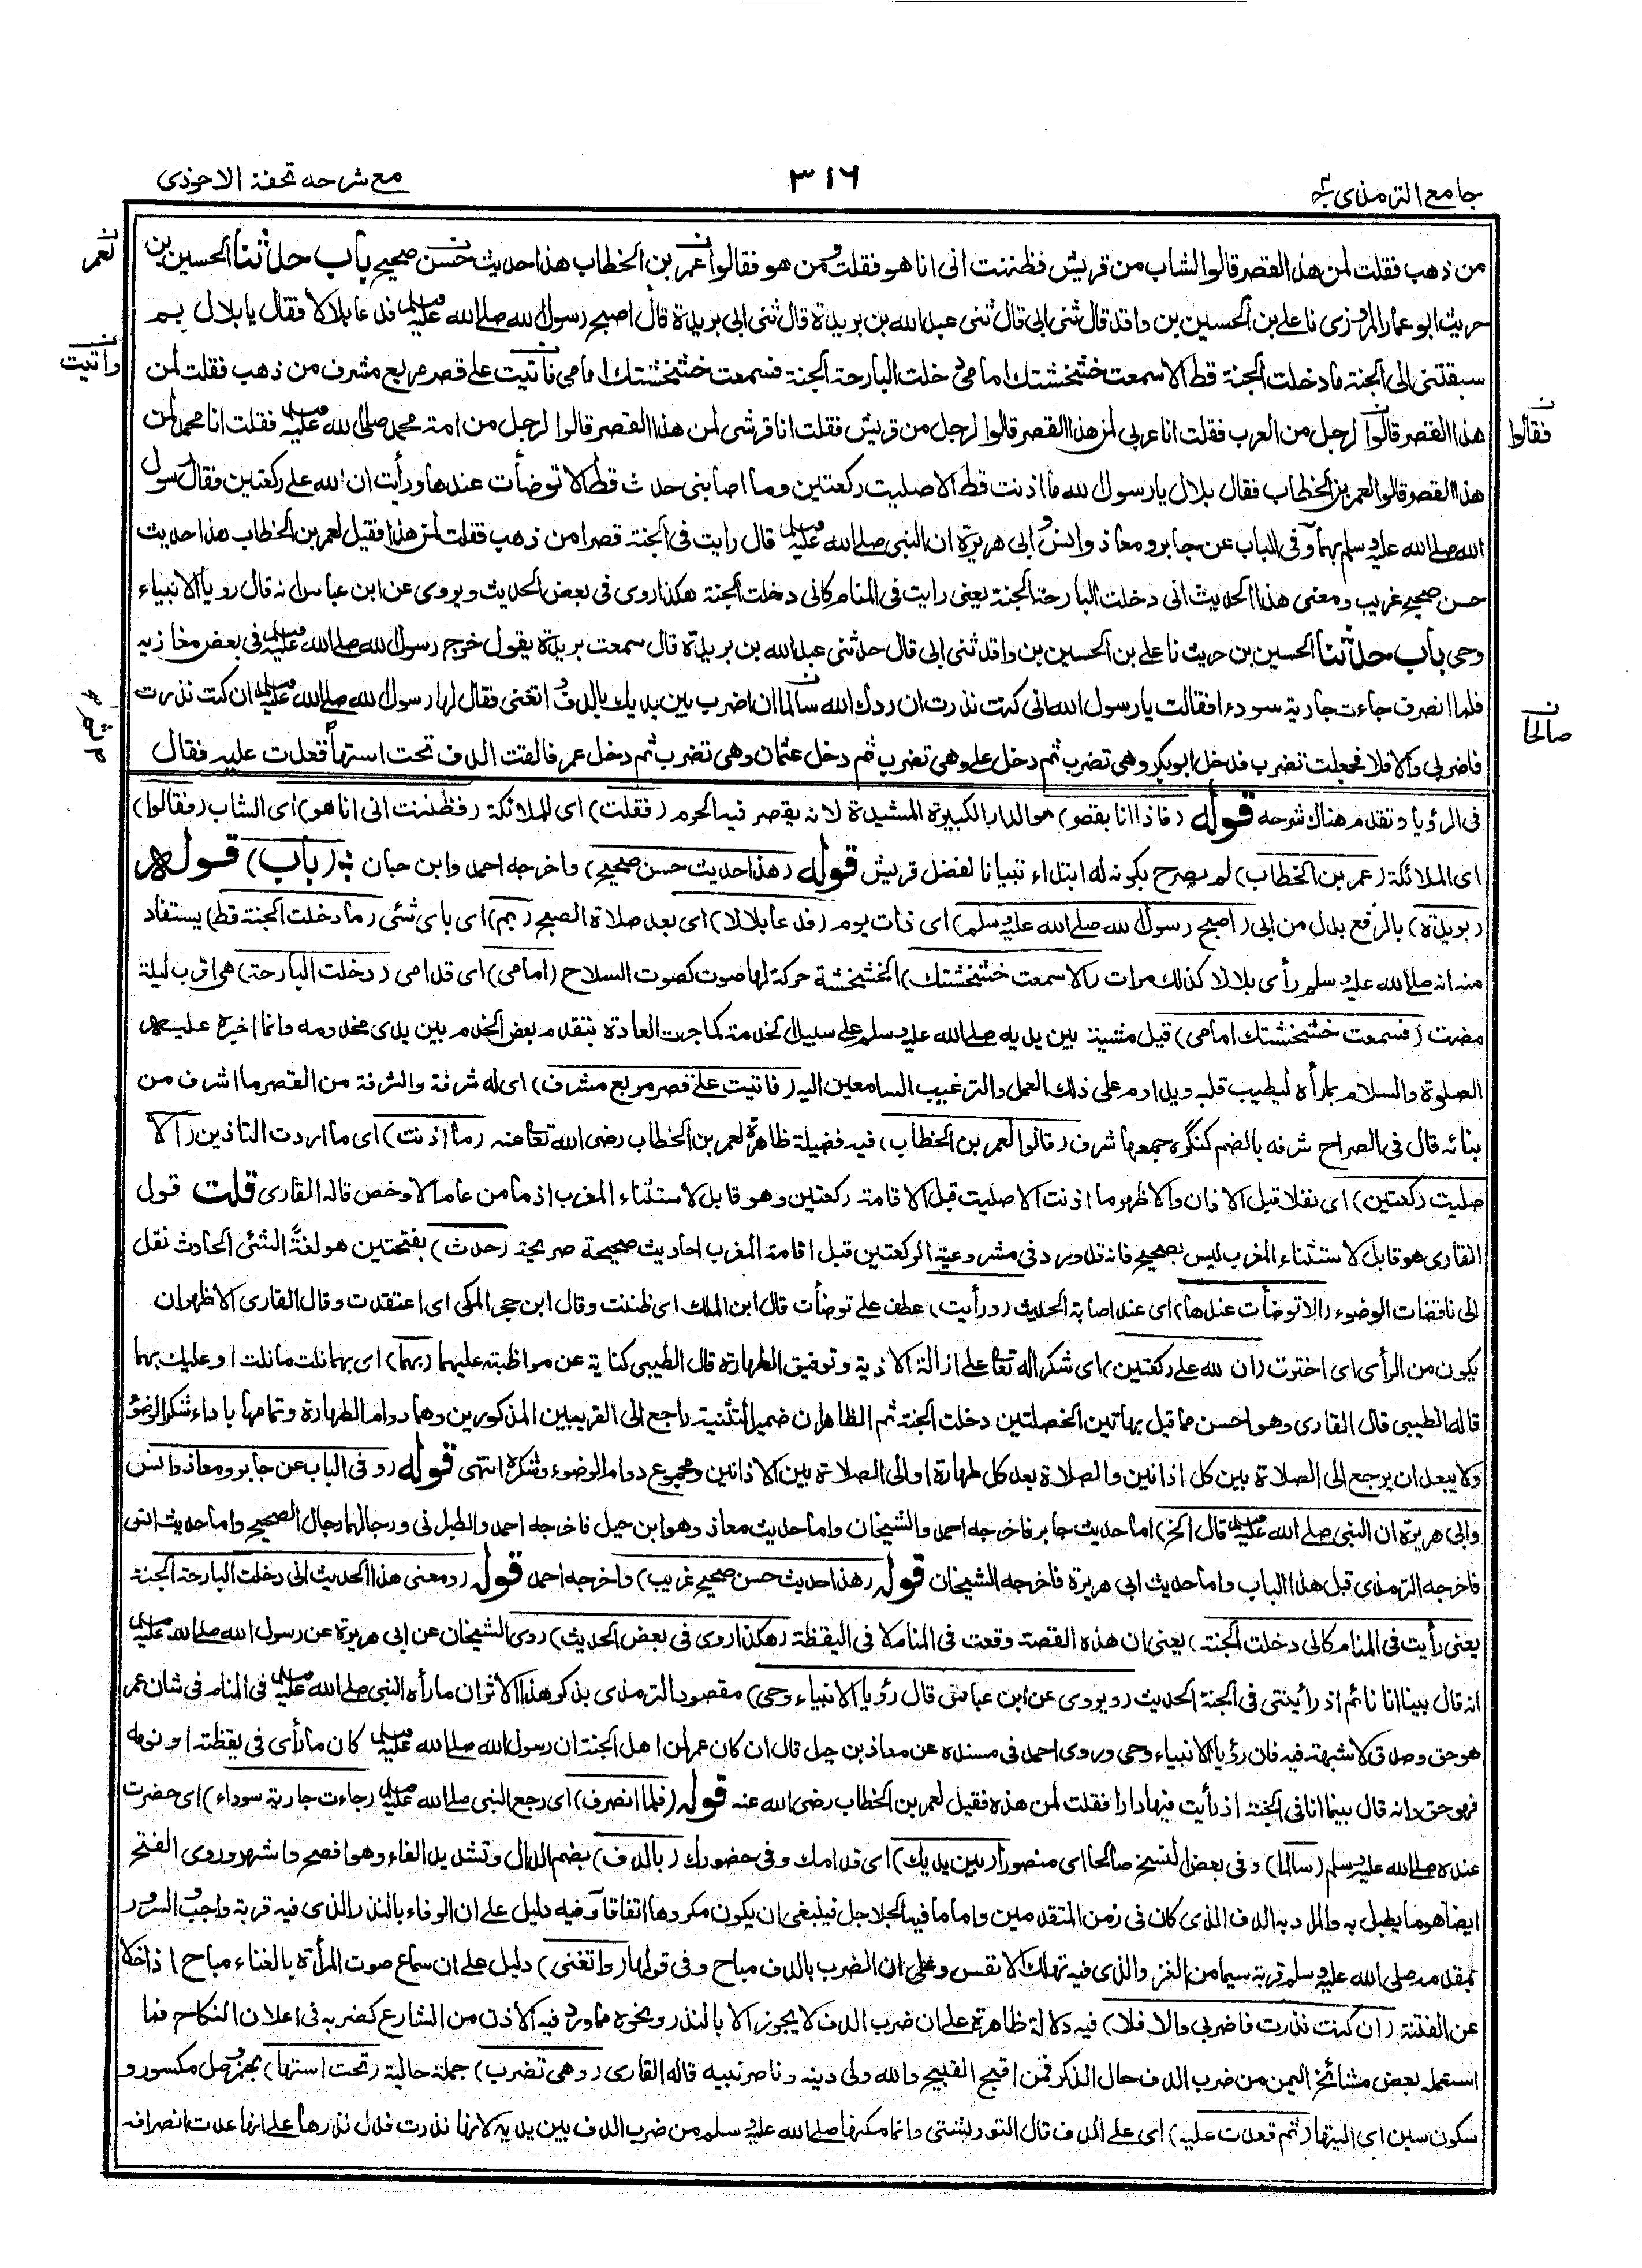 جامع الترمذی ج۴
٣١٦
مع شرحه تحفة الاحوذی
من ذهب فقلت لمن هذا القصر قالوا لشاب من قریش فظننت انی انا هو فقلت ومن هو فقالوا عمر بن الخطاب هذا حدیث حسن صحیح باب حدثنا الحسین بن
حریث ابو عمار المروزی نا علی بن الحسین بن واقد قال ثنی ابی قال ثنی عبد الله بن بریدة قال ثنی ابی بریدة قال اصبح رسول الله صلے الله علیه وسلم فدعا بلالا فقال یا بلال بم
سبقتنی الی الجنة ما دخلت الجنة قط الا سمعت خشخشتك امامی دخلت البارحة الجنة فسمعت خشخشتك امامی فاتیت علے قصر مربع مشرف من ذهب فقلت لمن
هذا القصر قالوا لرجل من العرب فقلت انا عربی لمن هذا القصر قالوا لرجل من قریش فقلت انا قرشی لمن هذا القصر قالوا لرجل من امة محمد صلی الله علیه وسلم فقلت انا محمد لمن
هذا القصر قالوا لعمر بن الخطاب فقال بلال یا رسول الله ما اذنت قط الا صلیت رکعتین وما اصابنی حدث قط الا توضأت عندها ورأیت ان لله علی رکعتین فقال رسول
الله صلے الله علیه وسلم بهما وفی الباب عن جابر ومعاذ وانس وابی هریرة ان النبی صلے الله علیه وسلم قال رایت فی الجنة قصرا من ذهب فقلت لمن هذا فقیل لعمر بن الخطاب هذا حدیث
حسن صحیح غریب ومعنی هذا الحدیث انی دخلت البارحة الجنة یعنی رایت فی المنام کانی دخلت الجنة هکذا روی فی بعض الحدیث ویروی عن ابن عباس انه قال رویا الانبیاء
وحی باب حدثنا الحسین بن حریث نا علی بن الحسین بن واقد ثنی ابی قال حدثنی عبد الله بن بریدة قال سمعت بریدة یقول خرج رسول الله صلے الله علیه وسلم فی بعض مغازیه
فلما انصرف جاءت جاریة سوداء فقالت یا رسول الله انی کنت نذرت ان ردك الله سالما ان اضرب بین یدیك بالدف واتغنی فقال لها رسول الله صلے الله علیه وسلم ان کنت نذرت
فاضربی والا فلا فجعلت تضرب فدخل ابو بکر وهی تضرب ثم دخل علی وهی تضرب ثم دخل عثمان وهی تضرب ثم دخل عمر فالقت الدف تحت استها قعدت علیه فقال
لعمر
واتیت
فقالوا
صالحا
ثم
فی الرؤیا وتقدم هناك شرحه قوله (فاذا انا بقصر) هو الدار الکبیرة المشیدة لانه یقصر فیه الحرم (فقلت) ای للملائکة (فظننت انی انا هو) ای الشاب (فقالوا)
ای الملائکة (عمر بن الخطاب) لم یصرح بکونه له ابتداء تبیانا لفضل قریش قوله (هذا حدیث حسن صحیح) واخرجه احمد وابن حبان (باب) قوله
(بریدة) بالرفع بدل من ابی (اصبح رسول الله صلے الله علیه وسلم) ای ذات یوم (فدعا بلالا) ای بعد صلاة الصبح (بم) ای بای شئی (ما دخلت الجنة قط) یستفاد
منه انه صلے الله علیه وسلم رأی بلالا کذلك مرات (الا سمعت خشخشتك) الخشخشة حرکة لها صوت کصوت السلاح (امامی) ای قدامی (دخلت البارحة) هی اقرب لیلة
مضت (فسمعت خشخشتك امامی) قیل مشیته بین یدیه صلے الله علیه وسلم علے سبیل الخدمة کما جرت العادة بتقدم بعض الخدم بین یدی مخدومه وانما اخبره علیه
الصلوة والسلام بما رأه لیطیب قلبه ویداوم علی ذلك العمل والترغیب السامعین الیه (فاتیت علے قصر مربع مشرف) ای له شرفة والشرفة من القصر ما اشرف من
بنائه قال فی الصراح شرفه بالضم کنگره جمعها شرف (قالوا لعمر بن الخطاب) فیه فضیلة ظاهرة لعمر بن الخطاب رضی الله تعا عنه (ما اذنت) ای ما اردت التاذین (الا
صلیت رکعتین) ای نفلا قبل الاذان والاظهر ما اذنت الا صلیت قبل الاقامة رکعتین وهو قابل لاستثناء المغرب اذ ما من عام الا وخص قاله القاری قلت قول
القاری هو قابل لاستثناء المغرب لیس بصحیح فانه قد ورد فی مشروعیة الرکعتین قبل اقامة المغرب احادیث صحیحة صریحة (حدث) بفتحتین هو لغةً الشئی الحادث نقل
الی ناقضات الوضوء (الا توضأت عندها) ای عند اصابة الحدیث (ورأیت) عطف علے توضأت قال ابن الملك ای ظننت وقال ابن حجر المکی ای اعتقدت وقال القاری الاظهر ان
یکون من الرأی ای اخترت (ان لله علی رکعتین) ای شکر اله تعا علے ازالة الاذیة وتوفیق الطهارة قال الطیبی کنایة عن مواظبته علیهما (بهما) ای بهما نلت ما نلت او علیك بهما
قاله الطیبی قال القاری وهو احسن مما قیل بهاتین الخصلتین دخلت الجنة ثم الظاهر ان ضمیر التثنیة راجع الی القریبین المذکورین وهما دوام الطهارة وتمامها باداء شکر الوضؤ
ولا یبعد ان یرجع الی الصلاة بین کل اذانین والصلاة بعد کل طهارة او الی الصلاة بین الاذانین ومجموع دوام الوضوء وشکره انتهی قوله (وفی الباب عن جابر ومعاذ وانس
وابی هریرة ان النبی صلے الله علیه وسلم قال الخ) اما حدیث جابر فاخرجه احمد والشیخان واما حدیث معاذ وهو ابن جبل فاخرجه احمد والطبرانی ورجالهما رجال الصحیح واما حدیث انس
فاخرجه الترمذی قبل هذا الباب واما حدیث ابی هریرة فاخرجه الشیخان قوله (هذا حدیث حسن صحیح غریب) واخرجه احمد قوله (ومعنی هذا الحدیث انی دخلت البارحة الجنة
یعنی رأیت فی المنام کانی دخلت الجنة) یعنی ان هذه القصة وقعت فی المنام لا فی الیقظة (هکذا روی فی بعض الحدیث) روی الشیخان عن ابی هریرة عن رسول الله صلے الله علیه وسلم
انه قال بینا انا نائم اذ رأیتنی فی الجنة الحدیث (ویروی عن ابن عباس قال رؤیا الانبیاء وحی) مقصود الترمذی بذکر هذا الاثر ان ما رأه النبی صلے الله علیه وسلم فی المنام فی شان عمر
هو حق وصدق لا شبهة فیه فان رؤیا الانبیاء وحی وروی احمد فی مسنده عن معاذ بن جبل قال ان کان عمر لمن اهل الجنة ان رسول الله صلے الله علیه وسلم کان ما رأی فی یقظته او نومه
فهو حق وانه قال بینما انا فی الجنة اذ رأیت فیها دارا فقلت لمن هذه فقیل لعمر بن الخطاب رضی الله عنه قوله (فلما انصرف) ای رجع النبی صلے الله علیه وسلم (جاءت جاریة سوداء) ای حضرت
عنده صلے الله علیه وسلم (سالما) وفی بعض النسخ صالحا ای منصورا (بین یدیك) ای قدامك وفی حضورك (بالدف) بضم الدال وتشدید الفاء وهو افصح واشهر وروی الفتح
ایضا هو ما یطبل به والمراد به الدف الذی کان فی زمن المتقدمین واما ما فیه الجلاجل فینبغی ان یکون مکروها اتفاقا وفیه دلیل علے ان الوفاء بالنذر الذی فیه قربة واجب والسرور
بمقدمه صلی الله علیه وسلم قربة سیما من الغزو الذی فیه تهلك الانفس وعلی ان الضرب بالدف مباح وفی قولها (واتغنی) دلیل علے ان سماع صوت المرأة بالغناء مباح اذا خلا
عن الفتنة (ان کنت نذرت فاضربی والا فلا) فیه دلالة ظاهرة علے ان ضرب الدف لا یجوز الا بالنذر ونحوه مما ورد فیه الاذن من الشارع کضربه فی اعلان النکاح فما
استعمله بعض مشائخ الیمن من ضرب الدف حال الذکر فمن اقبح القبیح والله ولی دینه وناصر نبیه قاله القاری (وهی تضرب) جملة حالیة (تحت استها) بهمز وصل مکسور و
سکون سین ای الیتها (ثم قعدت علیه) ای علے الدف قال التوربشتی وانما مکنها صلے الله علیه وسلم من ضرب الدف بین یدیه لانها نذرت فدل نذرها علے انها عدت انصرافه